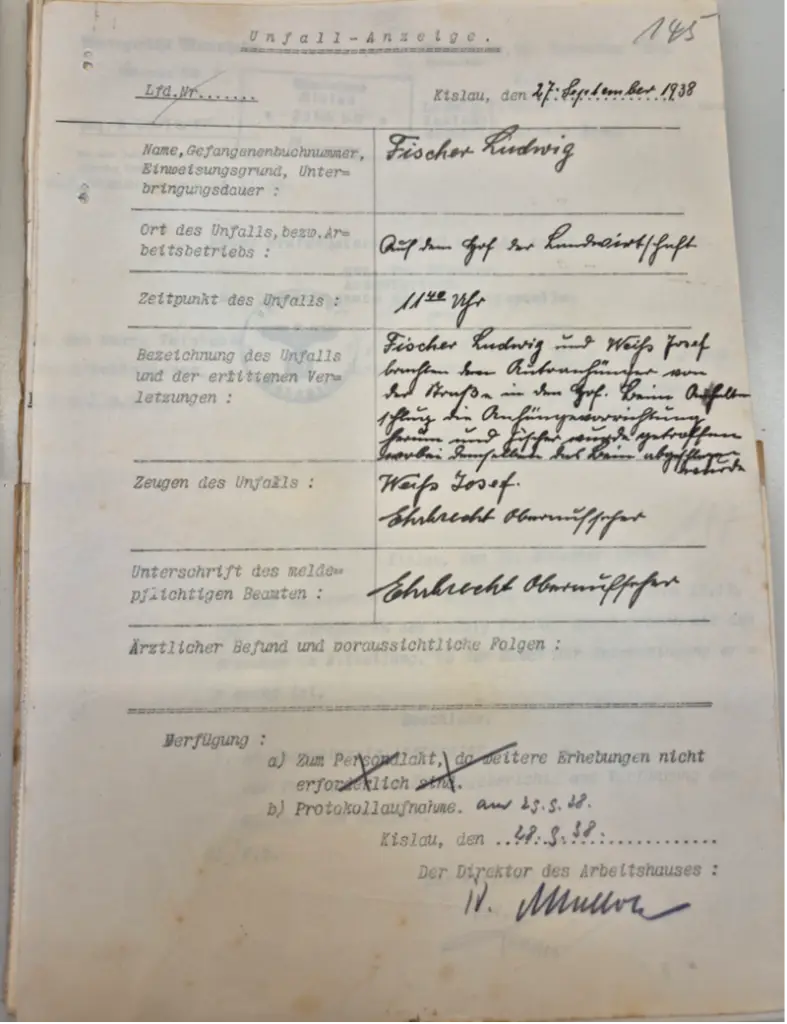 145
Unfall-Anzeige.
Lfd.Nr.......
Kislau, den 27. September 1938
Name, Gefangenenbuchnummer,
Einweisungsgrund, Unter=
bringungsdauer :
Fischer Ludwig
Ort des Unfalls, bezw. Ar=
beitsbetriebs :
Auf dem Hof der Landwirtschaft
Zeitpunkt des Unfalls :
11 40 Uhr
Bezeichnung des Unfalls
und der erlittenen Ver=
letzungen :
Fischer Ludwig und Weiß Josef
brachten den Autoanhänger von
der Straße in den Hof. Beim
schlug die Anhängevorrichtung
herum und Fischer wurde getroffen
wobei demselben das Bein
wurde
Zeugen des Unfalls :
Weiß Josef.
Ehrbrecht Oberaufseher
Unterschrift des melde=
pflichtigen Beamten :
Ehrbrecht Oberaufseher
Ärztlicher Befund und voraussichtliche Folgen :
Verfügung :
a) Zum Personalakt, da weitere Erhebungen nicht
erforderlich sind.
b) Protokollaufnahme. am 29.9.38.
Kislau, den ..28.9.38...............
Der Direktor des Arbeitshauses :